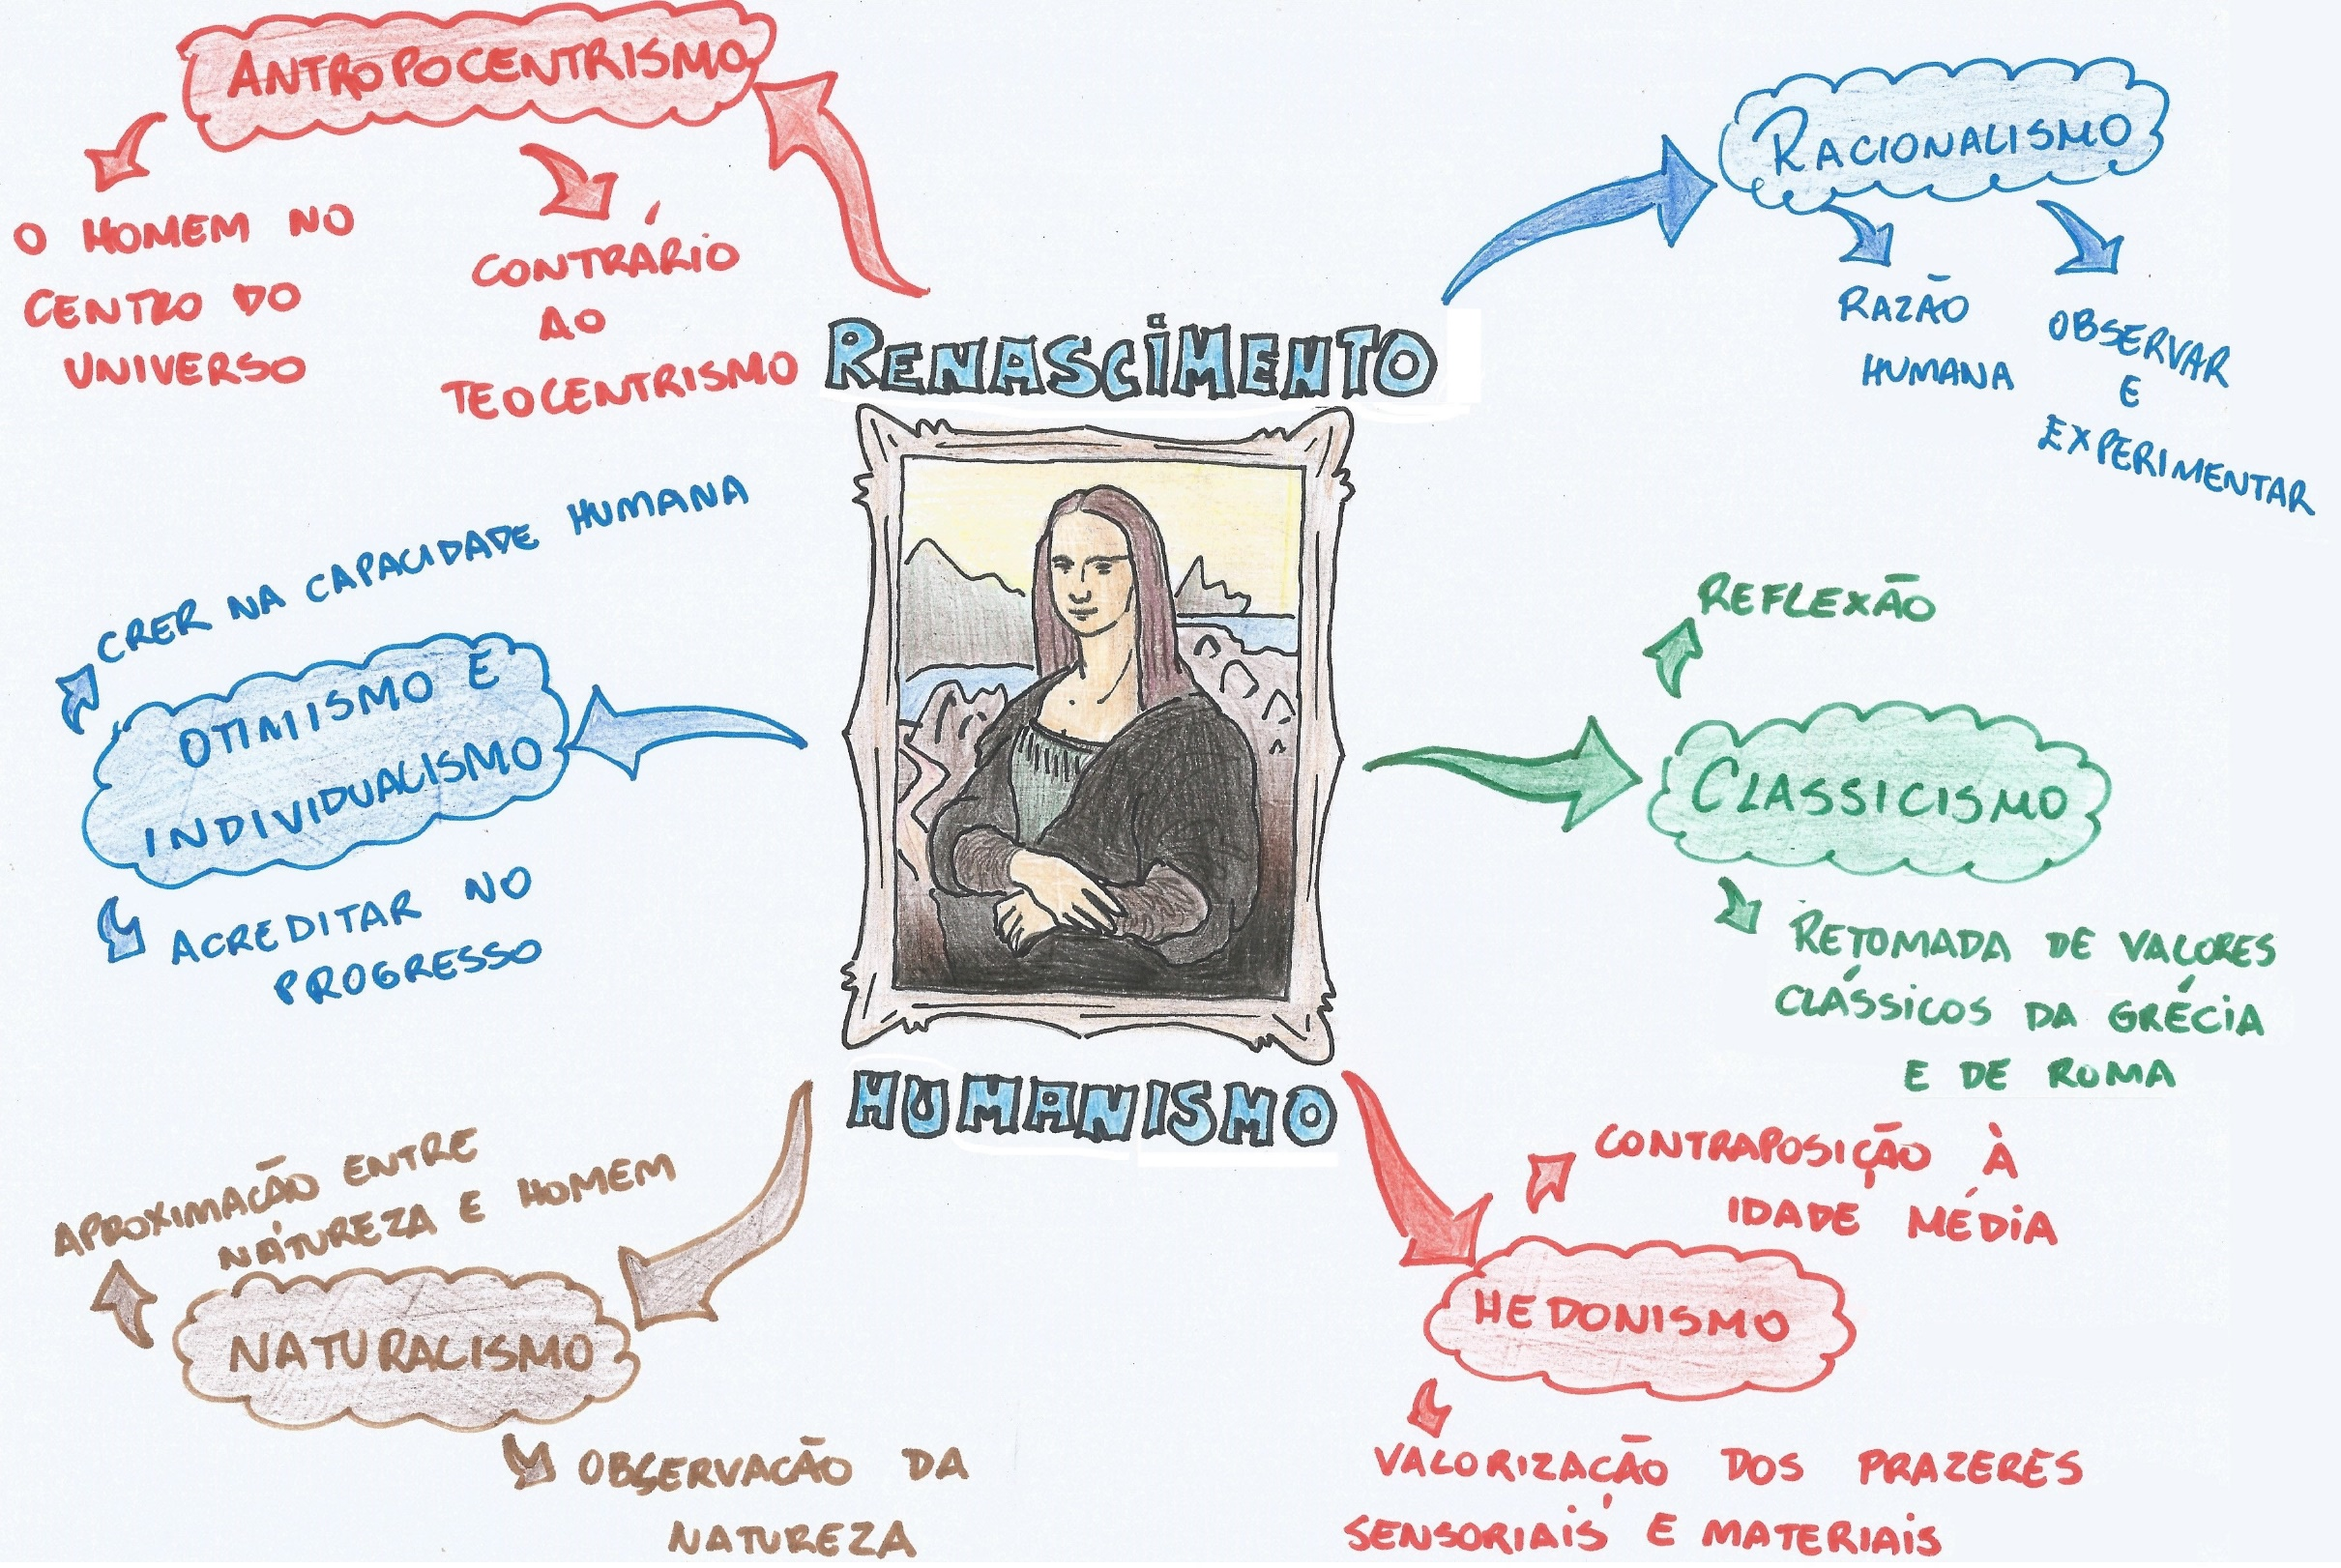 ANTROPOCENTRISMO
O HOMEM NO
CENTRO DO
UNIVERSO
CONTRÁRIO
AO
TEOCENTRISMO
RACIONALISMO
RAZÃO
HUMANA
OBSERVAR
E
EXPERIMENTAR
RENASCIMENTO
HUMANISMO
CRER NA CAPACIDADE HUMANA
OTIMISMO E
INDIVIDUALISMO
ACREDITAR NO
PROGRESSO
REFLEXÃO
CLASSICISMO
RETOMADA DE VALORES
CLÁSSICOS DA GRÉCIA
E DE ROMA
APROXIMAÇÃO ENTRE
NATUREZA E HOMEM
NATURALISMO
OBSERVAÇÃO DA
NATUREZA
CONTRAPOSIÇÃO À
IDADE MÉDIA
HEDONISMO
VALORIZAÇÃO DOS PRAZERES
SENSORIAIS E MATERIAIS